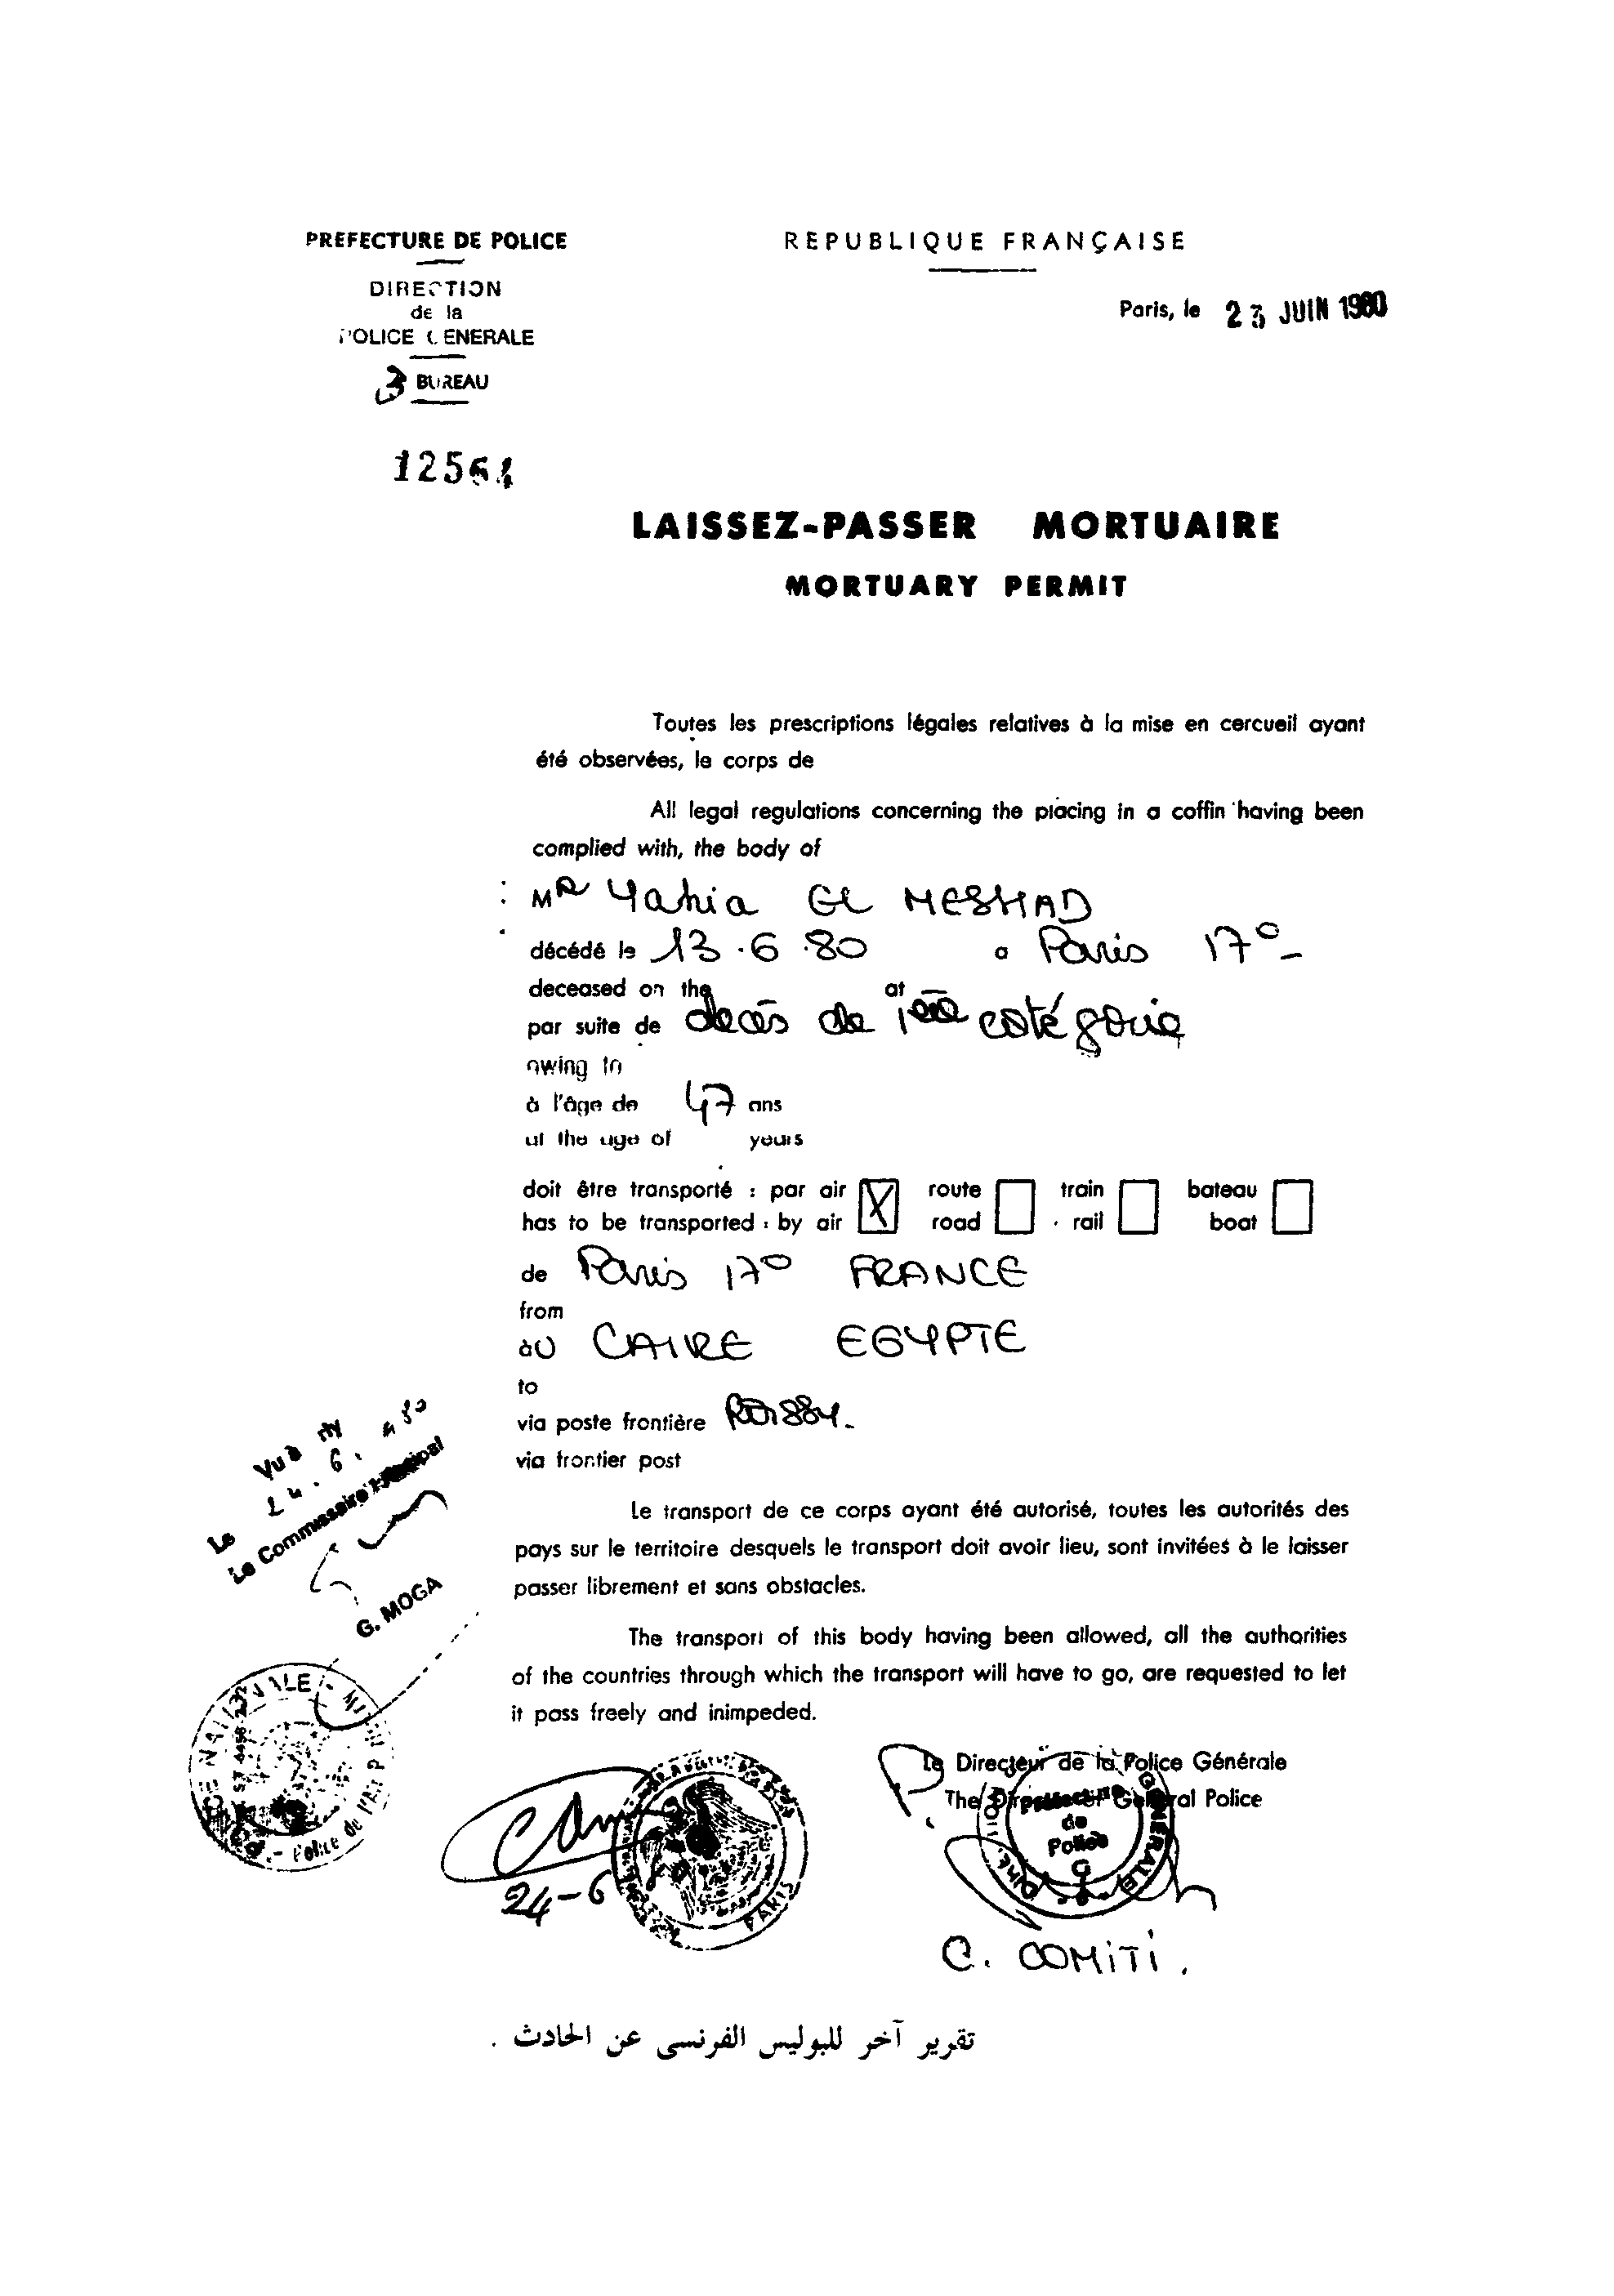 PREFECTURE DE POLICE
DIRECTION
de la
POLICE GENERALE
3 BUREAU
12564
REPUBLIQUE FRANÇAISE
Paris, le 23 JUIN 1980
LAISSEZ-PASSER MORTUAIRE
MORTUARY PERMIT
Toutes les prescriptions légales relatives à la mise en cercueil ayant
été observées, le corps de
All legal regulations concerning the placing in a coffin having been
complied with, the body of
MR Yahia EL MESHAD
décédé le 13.6.80 a Paris 17°
deceased on the at
par suite de décès de 1ère catégorie
owing to
à l'âge de 47 ans
at the age of years
doit être transporté : par air X route train bateau
has to be transported : by air road rail boat
de Paris 17° FRANCE
from
àU CAIRE EGYPTE
to
via poste frontière
via frontier post
Le transport de ce corps ayant été autorisé, toutes les autorités des
pays sur le territoire desquels le transport doit avoir lieu, sont invitées à le laisser
passer librement et sans obstacles.
The transport of this body having been allowed, all the authorities
of the countries through which the transport will have to go, are requested to let
it pass freely and inimpeded.
Vu à
Le 24.6.
Le Commissaire Principal
G. MOGA
Police de l'Air
Le Directeur de la Police Générale
The Director General Police
Préfecture
de
Police
GÉNÉRALE
24-6
PARIS
C. COMiTi.
تقرير آخر للبوليس الفرنسى عن الحادث .